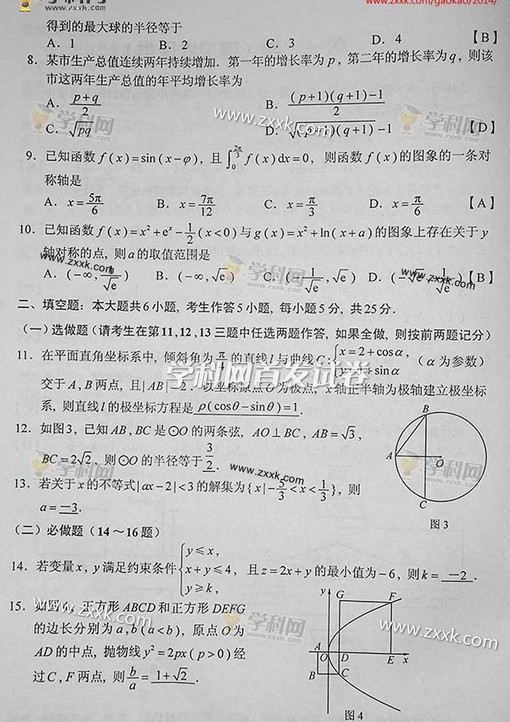 www.zxxk.com/gaokao/2014/
得到的最大球的半径等于
A. 1 B. 2 C. 3 D. 4 【B】
8. 某市生产总值连续两年持续增加. 第一年的增长率为 p, 第二年的增长率为 q, 则该
市这两年生产总值的年平均增长率为
A. (p+q)/2 B. ((p+1)(q+1)-1)/2
C. √pq D. √(p+1)(q+1)-1 【D】
www.zxxk.com
学科网
9. 已知函数 f(x)=sin(x-φ), 且 ∫₀^(2π/3) f(x)dx=0, 则函数 f(x) 的图象的一条对
称轴是
A. x=5π/6 B. x=7π/12 C. x=π/3 D. x=π/6 【A】
10. 已知函数 f(x)=x²+eˣ-1/2(x<0) 与 g(x)=x²+ln(x+a) 的图象上存在关于 y
轴对称的点, 则 a 的取值范围是
A. (-∞, 1/√e) B. (-∞, √e) C. (-1/√e, √e) D. (-√e, 1/√e) 【B】
www.zxxk.com
学科网
二、填空题: 本大题共6小题, 考生作答5小题, 每小题5分, 共25分.
(一)选做题(请考生在第11,12,13三题中任选两题作答, 如果全做, 则按前两题记分)
11. 在平面直角坐标系中, 倾斜角为 π/4 的直线 l 与曲线 C: {x=2+cosα, (α为参数)
学科网首发试卷
交于 A, B 两点, 且 |AB|=2. 以坐标原点 O 为极点, x 轴正半轴为极轴建立极坐标
系, 则直线 l 的极坐标方程是 ρ(cosθ-sinθ)=1.
12. 如图3, 已知 AB, BC 是 ⊙O 的两条弦, AO⊥BC, AB=√3,
BC=2√2, 则 ⊙O 的半径等于 3/2.
www.zxxk.com
B
A
O
C
图 3
学科网
13. 若关于 x 的不等式 |ax-2|<3 的解集为 {x|-5/3<x<1/3}, 则
a= -3.
(二)必做题(14～16题)
14. 若变量 x, y 满足约束条件 {y≤x, x+y≤4, y≥k, 且 z=2x+y 的最小值为 -6, 则 k= -2.
15. 正方形 ABCD 和正方形 DEFG
的边长分别为 a, b(a<b), 原点 O 为
AD 的中点, 抛物线 y²=2px(p>0) 经
过 C, F 两点, 则 b/a= 1+√2.
学科网
www.zxxk.com
y
G
F
A
O
D
E
x
B
C
图 4